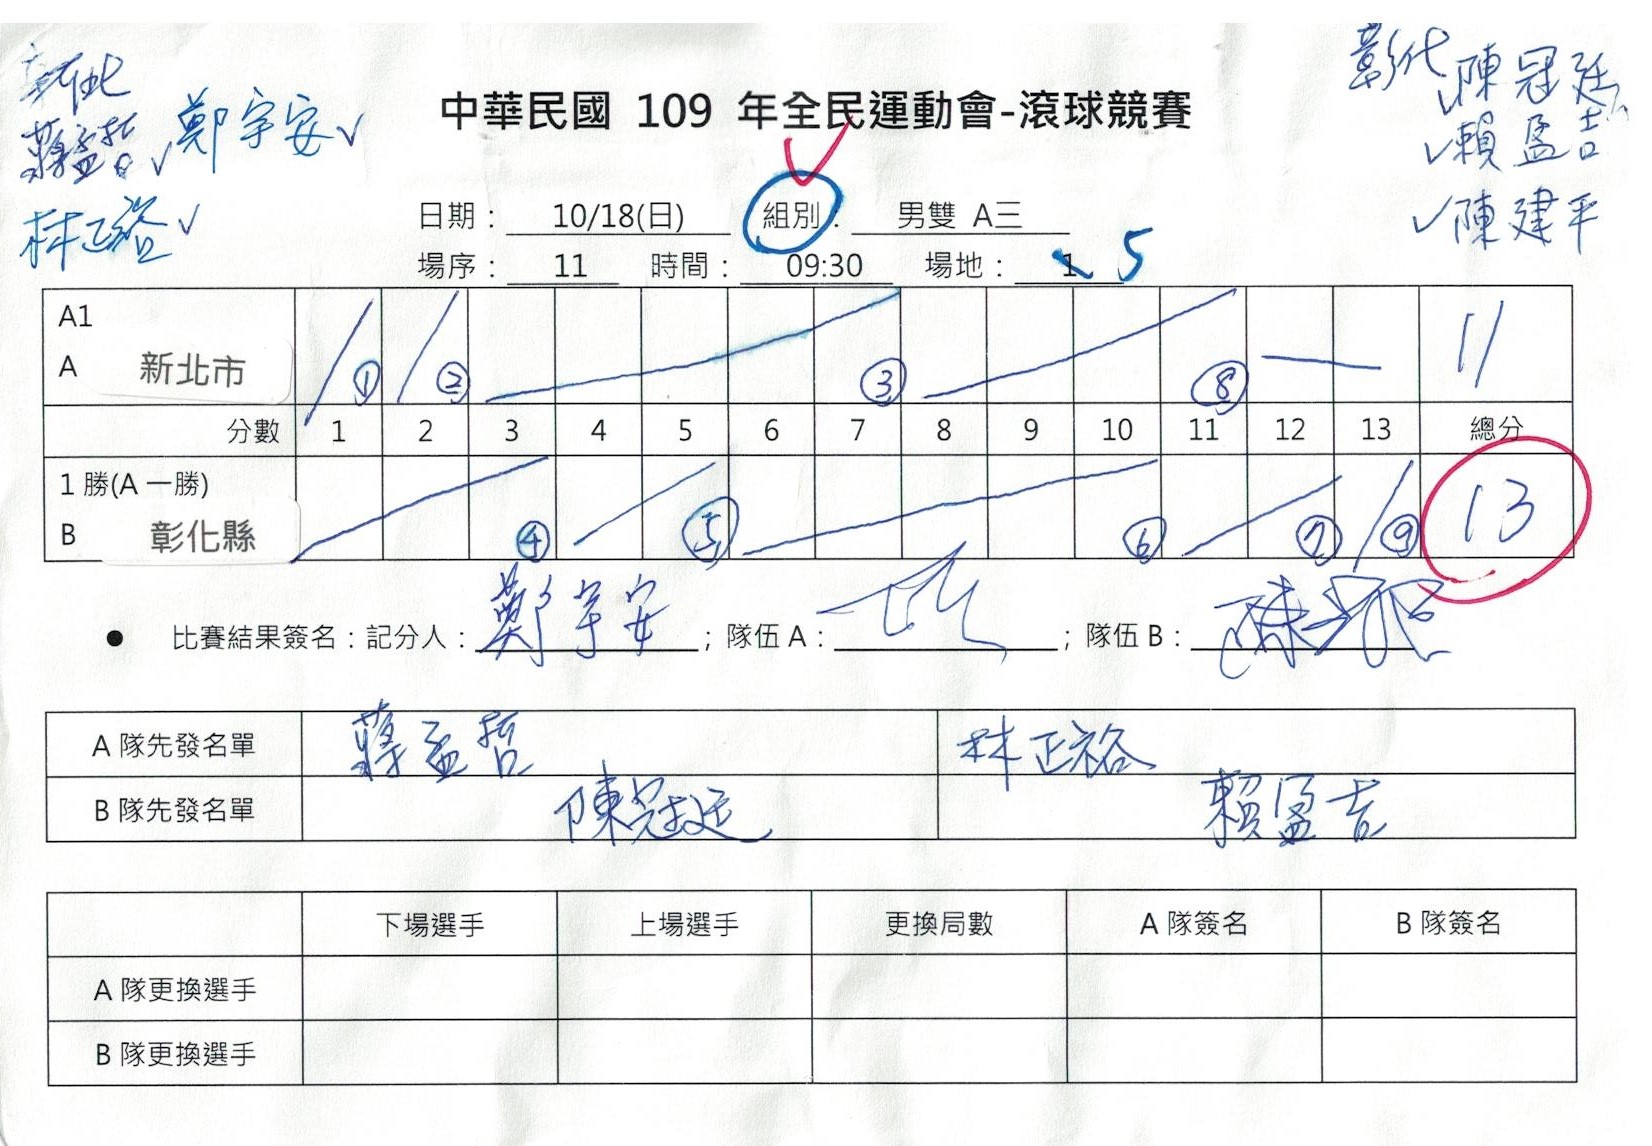 新北
蔣孟哲 鄭宇安
林正裕
彰化 陳冠廷
賴盈吉
陳建平
中華民國 109 年全民運動會-滾球競賽
日期： 10/18(日) 組別： 男雙 A三
場序： 11 時間： 09:30 場地： 1 5
A1
A 新北市 ① ② ③ ⑧ 11
分數 1 2 3 4 5 6 7 8 9 10 11 12 13 總分
1 勝(A 一勝)
B 彰化縣 ④ ⑤ ⑥ ⑦ ⑨ 13
● 比賽結果簽名：記分人：鄭宇安；隊伍 A：；隊伍 B：
A 隊先發名單 蔣孟哲 林正裕
B 隊先發名單 陳冠廷 賴盈吉
下場選手 上場選手 更換局數 A 隊簽名 B 隊簽名
A 隊更換選手
B 隊更換選手